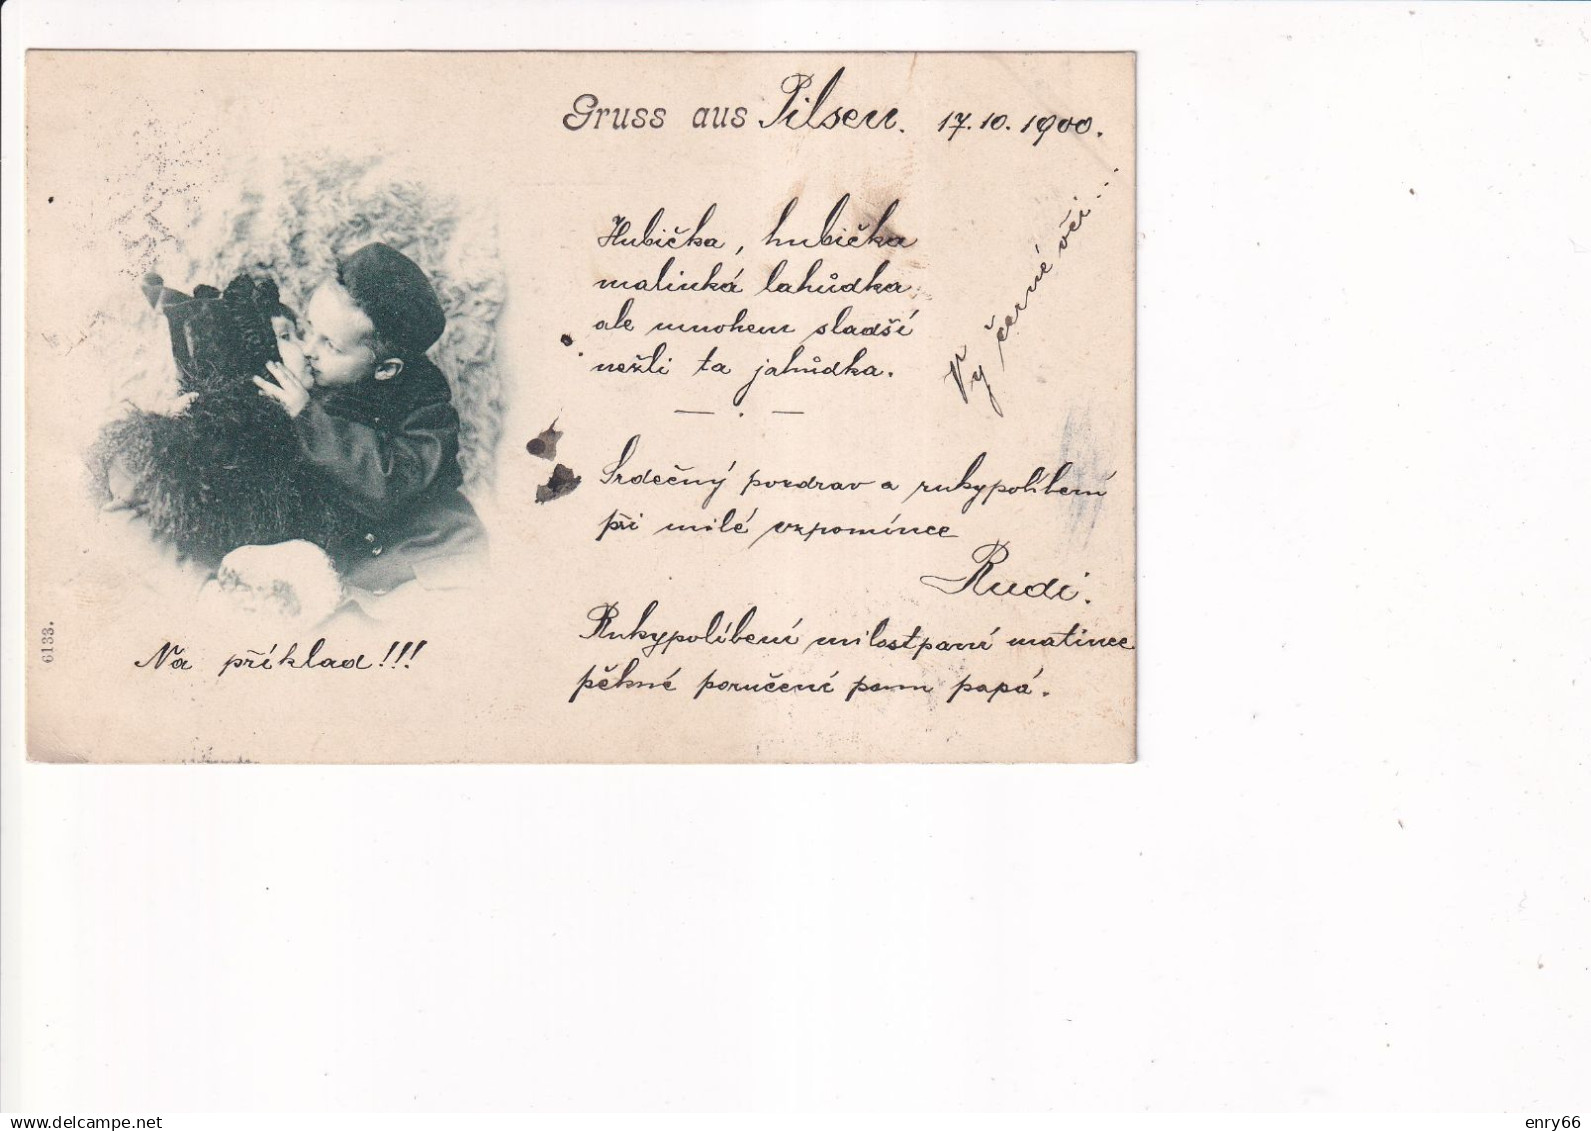 Gruss aus Pilsen. 17. 10. 1900.
Hubička, hubička
malinká lahůdka
ale mnohem sladší
nežli ta jahůdka.
Vy černé oči....
Srdečný pozdrav a rukypolíbení
při milé vzpomínce
Rudi.
Rukypolíbení milostpaní matince
pěkné poručení panu papá.
Na příklad!!!
6133.
delcampe.net
enry66